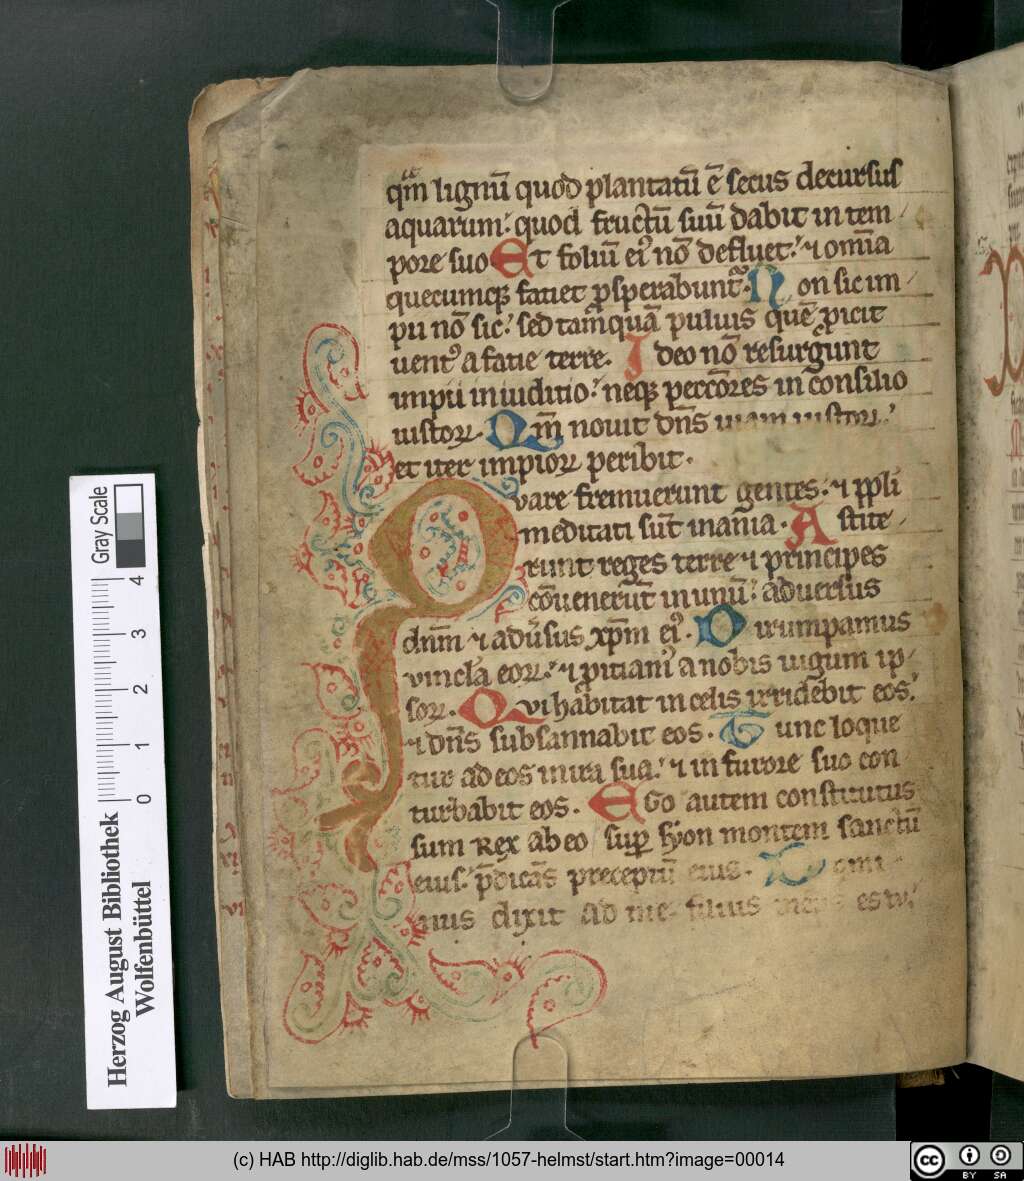 qͣm lignū quod plantatū ē secus decursus
aquarum: quod fructū suū dabit in tem
pore suo Et foliū eiꝰ nō defluet: ⁊ om̄ia
quecumqꝫ faciet ꝓsperabunt᷑. Non sic im
pii nō sic: sed tamquā puluis quē ꝓicit
uentꝰ a facie terre. Ideo nō resurgunt
impii in iuditio: neqꝫ peccōres in consilio
iustoꝝ. Qm̄ nouit dn̄s uiam iustoꝝ:
et iter impioꝝ peribit.
Quare fremuerunt gentes: ⁊ ppli
meditati sūt inania. Astite
runt reges terre ⁊ principes
cōuenerūt in unū: aduersus
dnm̄ ⁊ adūsus xpm̄ eiꝰ. Dirumpamus
vincla eoꝝ: ⁊ ꝓiciamꝰ a nobis iugum ip
soꝝ. Qui habitat in celis irridebit eos:
⁊ dn̄s subsannabit eos. Tunc loque
tur ad eos in ira sua: ⁊ in furore suo con
turbabit eos. Ego autem constitutus
sum Rex ab eo suꝑ syon montem sanctū
eius: p̄dicās preceptū eius. Domi
nus dixit ad me filius meus es tu:
Gray Scale
4
3
2
1
0
Herzog August Bibliothek
Wolfenbüttel
(c) HAB http://diglib.hab.de/mss/1057-helmst/start.htm?image=00014
cc BY SA